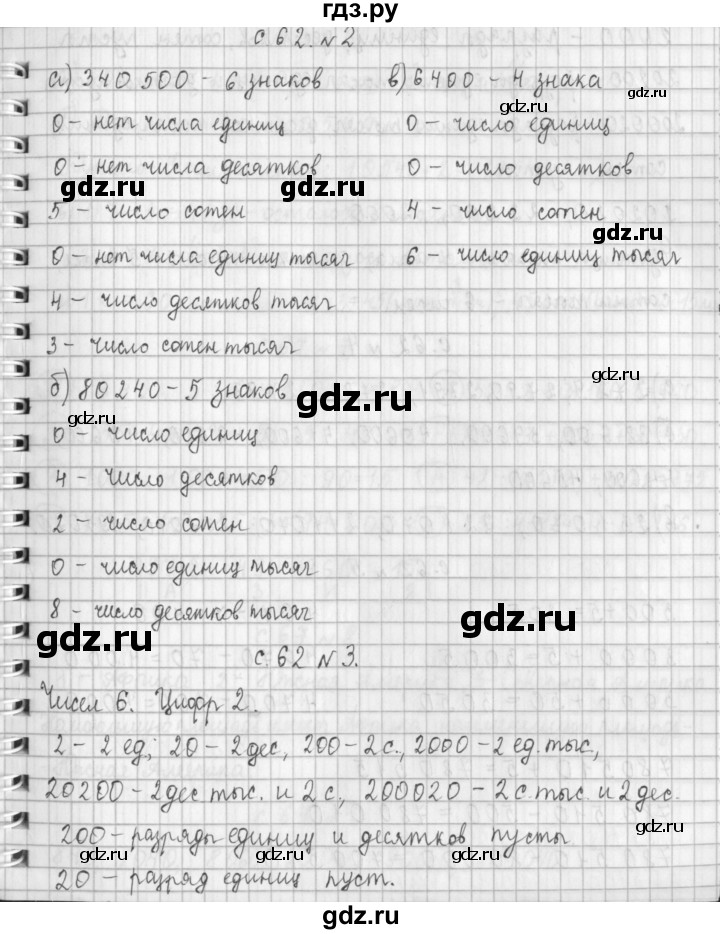 гдз.ру
с.62. №2
а) 340 500 - 6 знаков
0 - нет числа единиц
0 - нет числа десятков
5 - число сотен
0 - нет числа единиц тысяч
4 - число десятков тысяч
3 - число сотен тысяч
в) 6400 - 4 знака
0 - число единиц
0 - число десятков
4 - число сотен
6 - число единиц тысяч
б) 80240 - 5 знаков
0 - число единиц
4 - число десятков
2 - число сотен
0 - число единиц тысяч
8 - число десятков тысяч
с.62 №3.
Чисел 6. Цифр 2.
2 - 2 ед; 20 - 2 дес, 200 - 2 с., 2000 - 2 ед. тыс,
20200 - 2 дес тыс. и 2 с, 200020 - 2 с. тыс. и 2 дес.
200 - разряды единиц и десятков пусты
20 - разряд единиц пуст.
gdz.ru
gdz.ru
gdz.ru
gdz.ru
gdz.ru
gdz.ru
gdz.ru
gdz.ru
gdz.ru
gdz.ru
gdz.ru
gdz.ru